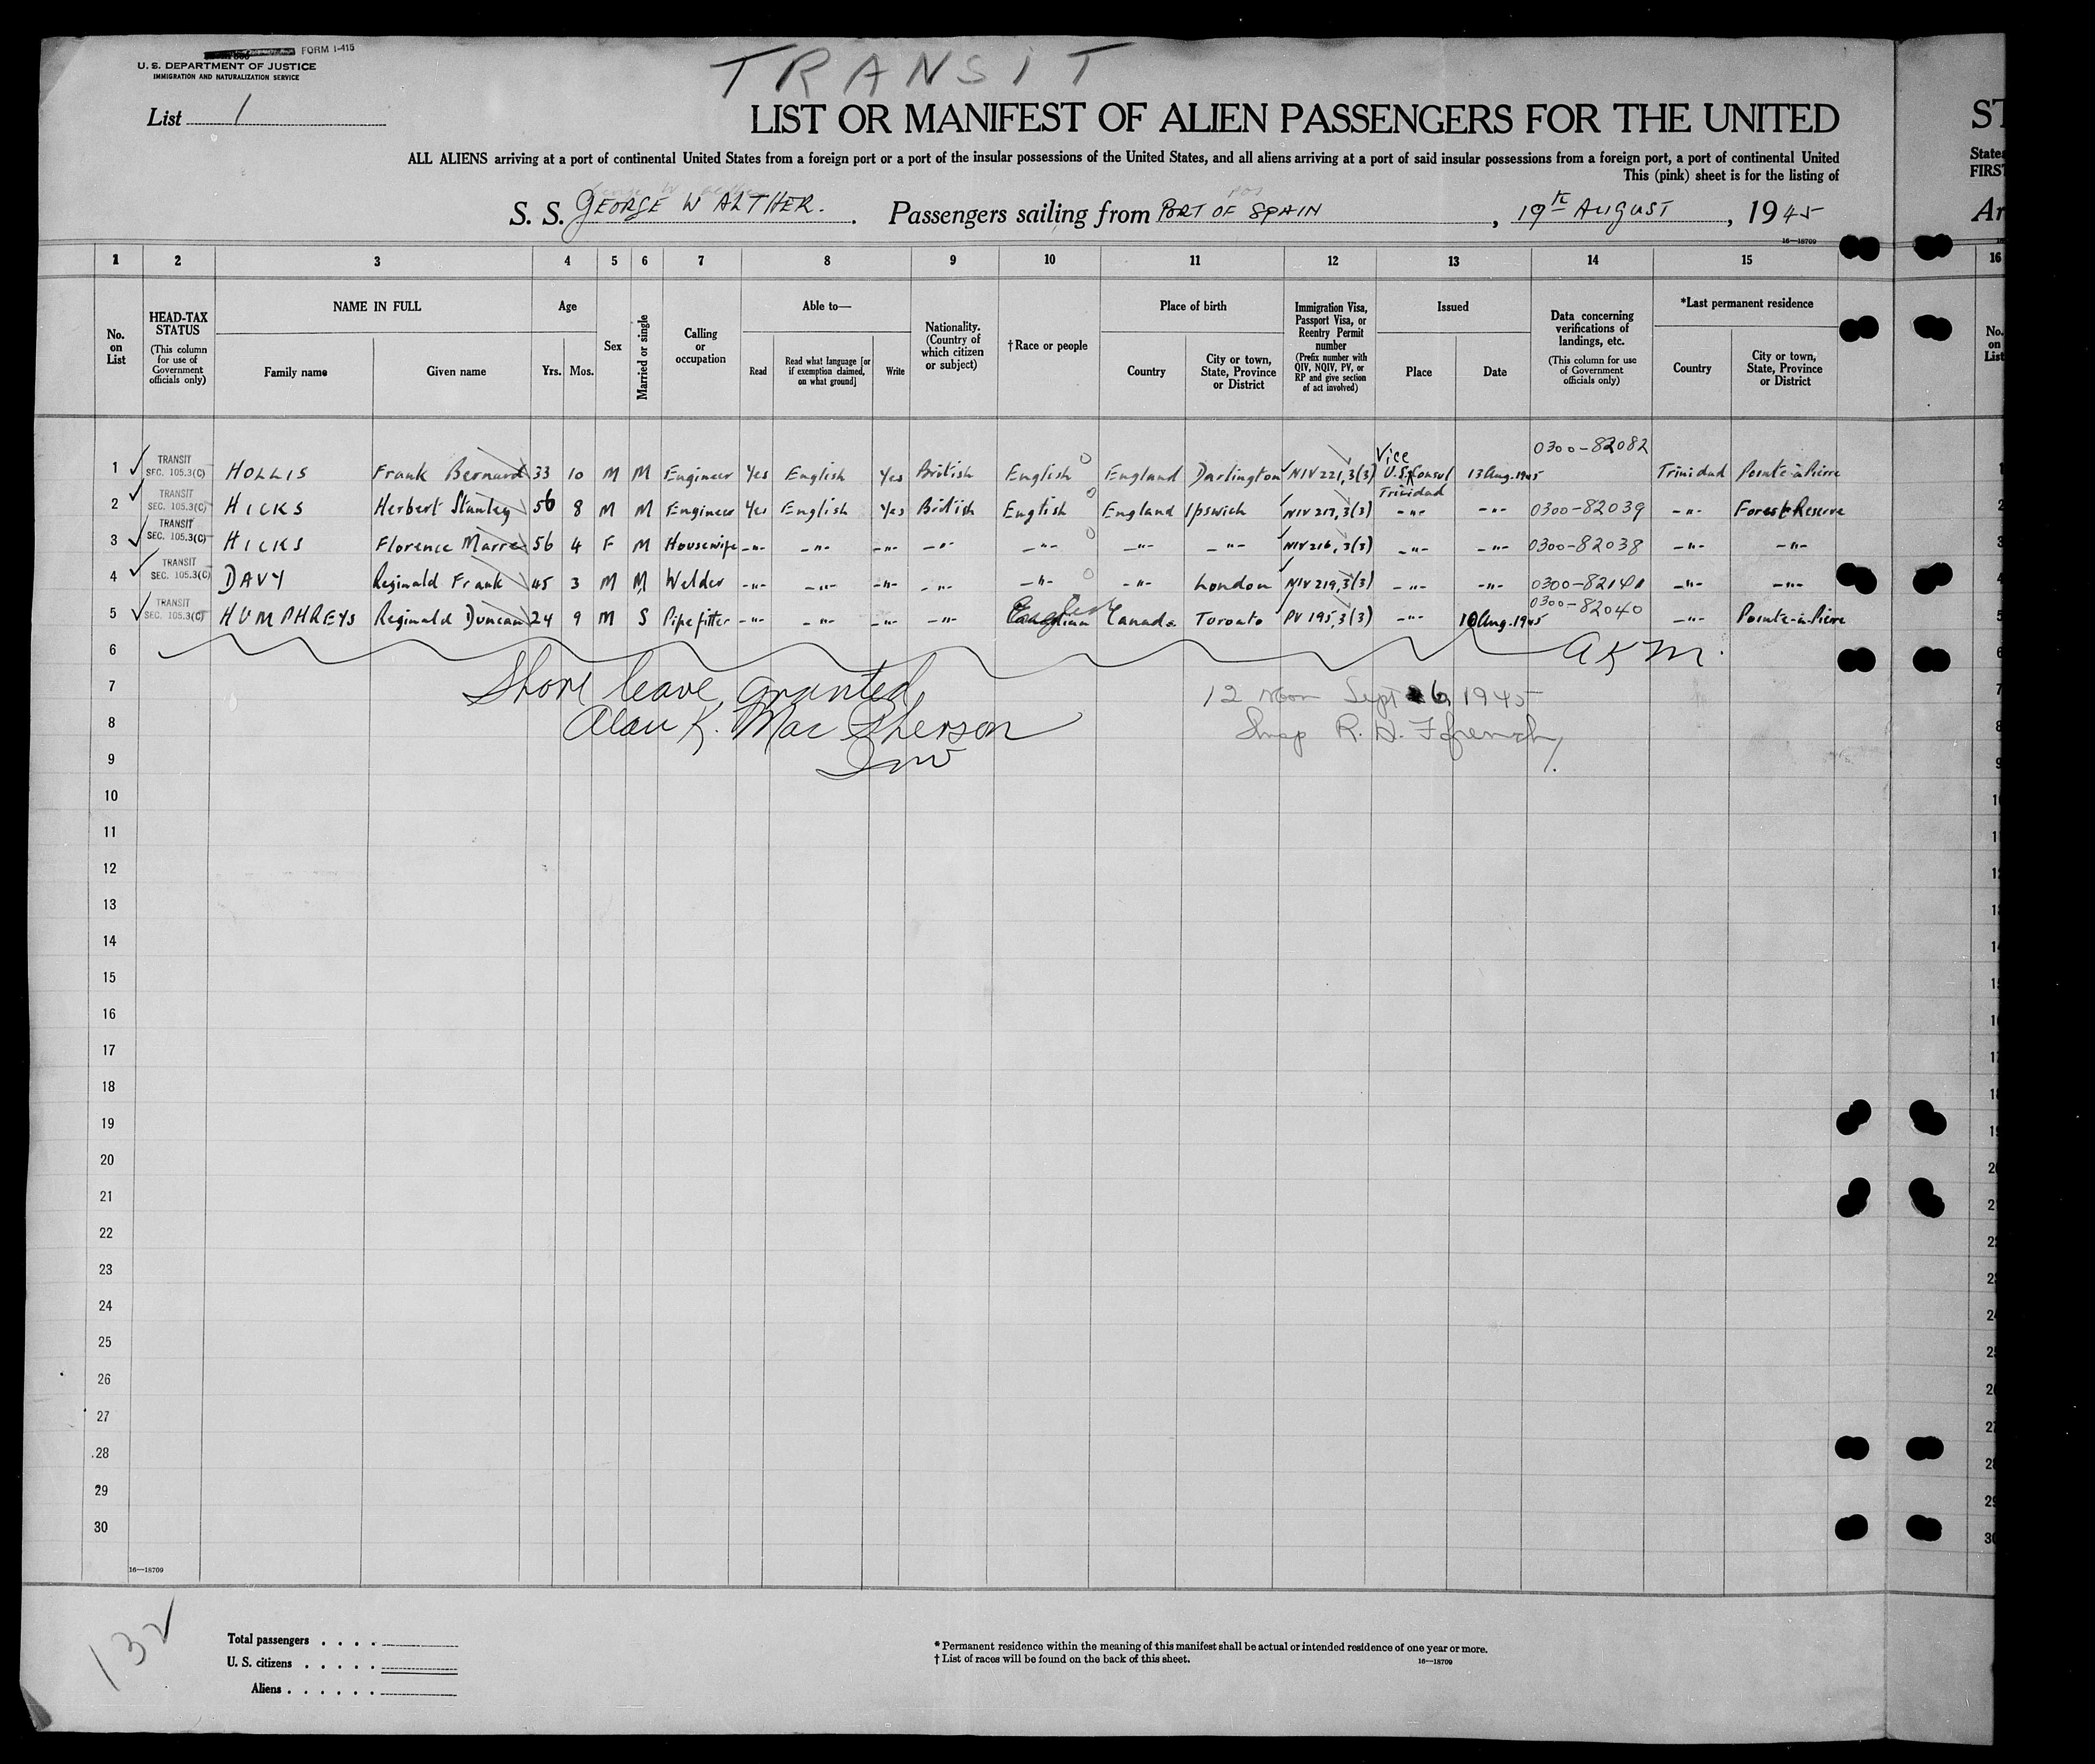 FORM I-415
U. S. DEPARTMENT OF JUSTICE
IMMIGRATION AND NATURALIZATION SERVICE
TRANSIT
List 1
LIST OR MANIFEST OF ALIEN PASSENGERS FOR THE UNITED
ST
ALL ALIENS arriving at a port of continental United States from a foreign port or a port of the insular possessions of the United States, and all aliens arriving at a port of said insular possessions from a foreign port, a port of continental United
States
This (pink) sheet is for the listing of
FIRS
S. S. GEORGE WALTHER. Passengers sailing from PORT OF SPAIN, 19th AUGUST, 1945
Ar
16—18709
1 2 3 4 5 6 7 8 9 10 11 12 13 14 15 16
No. on List
HEAD-TAX STATUS (This column for use of Government officials only)
NAME IN FULL
Family name Given name
Age
Yrs. Mos.
Sex
Married or single
Calling or occupation
Able to—
Read
Read what language [or if exemption claimed, on what ground]
Write
Nationality. (Country of which citizen or subject)
†Race or people
Place of birth
Country
City or town, State, Province or District
Immigration Visa, Passport Visa, or Reentry Permit number (Prefix number with QIV, NQIV, PV, or RP and give section of act involved)
Issued
Place Date
Data concerning verifications of landings, etc. (This column for use of Government officials only)
*Last permanent residence
Country
City or town, State, Province or District
No. on List
1 TRANSIT SEC. 105.3(C) HOLLIS Frank Bernard 33 10 M M Engineer Yes English Yes British English England Darlington NIV 221, 3(3) Vice U.S. Consul Trinidad 13 Aug. 1945 0300-82082 Trinidad Pointe-à-Pierre
2 TRANSIT SEC. 105.3(C) HICKS Herbert Stanley 56 8 M M Engineer Yes English Yes British English England Ipswich NIV 217, 3(3) -"- -"- 0300-82039 -"- Forest Reserve
3 TRANSIT SEC. 105.3(C) HICKS Florence 56 4 F M Housewife -"- -"- -"- -"- -"- -"- -"- NIV 216, 3(3) -"- -"- 0300-82038 -"- -"-
4 TRANSIT SEC. 105.3(C) DAVY Reginald Frank 45 3 M M Welder -"- -"- -"- -"- -"- -"- London NIV 219, 3(3) -"- -"- -"- -"-
5 TRANSIT SEC. 105.3(C) HUMPHREYS Reginald Duncan 24 9 M S Pipefitter -"- -"- -"- -"- English Canada Toronto PV 195, 3(3) -"- 10 Aug. 1945 0300-82040 -"- Pointe-à-Pierre
6 AKM.
7 Shore leave granted 12 noon Sept 6, 1945
8 Alan K. MacPherson
9
10
11
12
13
14
15
16
17
18
19
20
21
22
23
24
25
26
27
28
29
30
16—18709
132
Total passengers
U. S. citizens
Aliens
* Permanent residence within the meaning of this manifest shall be actual or intended residence of one year or more.
† List of races will be found on the back of this sheet.
16—18709